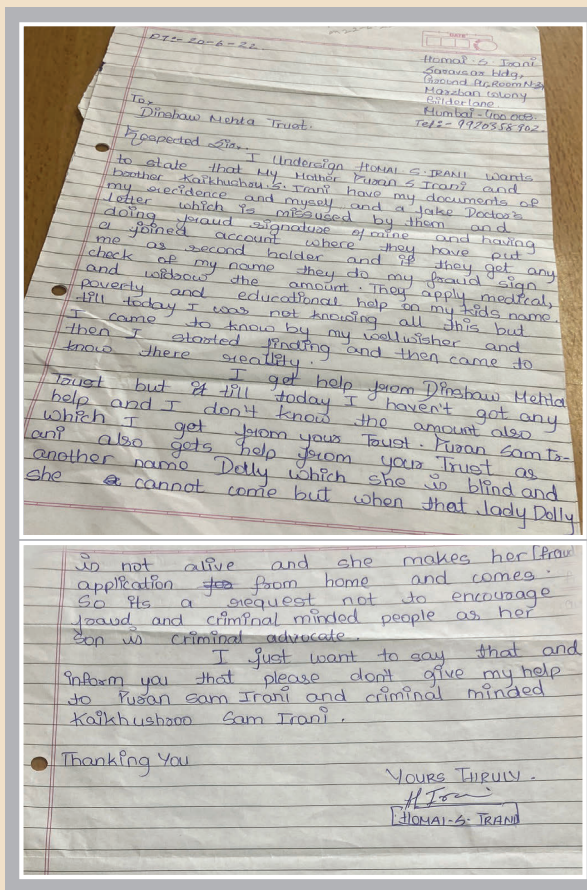 DT:- 20-6-22
DATE
Homai. S. Irani
Saravsar bldg,
Ground flr, Room No
Marzban colony
Bilder lane
Mumbai - 400 008.
Tel:- 9920558902
To,
Dinshaw Mehta Trust.
Respected Sir,
I Undersign HOMAI S. IRANI wants
to state that My Mother Puran S Irani and
boother Kaikhushou. S. Irani have my documents of
my recidence and myself and a fake Doctor's
lotter which is missused by them and
doing fraud signature of mine and having
a joined account where they have put
me as second holder and if they get any
check of my name they do my fraud sign
and widrow the amount. They apply medical,
poverty and educational help on my kids name.
till today I was not knowing all this but
I came to know by my wellwisher and
then I started finding and then came to
know there reality.
I get help from Dinshaw Mehta
Trust but if till today I haven't got any
help and I don't know the amount also
which I got from your Trust. Puran Sam Ir-
ani also gets help from your Trust as
another name Dolly which she is blind and
she cannot come but when that lady Dolly
is not alive and she makes her [fraud
application from home and comes.
So its a request not to encourage
fraud and criminal minded people as her
son is criminal advocate.
I just want to say that and
inform you that please don't give my help
to Puran Sam Irani and criminal minded
Kaikhushroo Sam Irani.
Thanking You
YOURS TIRULY.
H Irani
[HOMAI-S-IRANI]